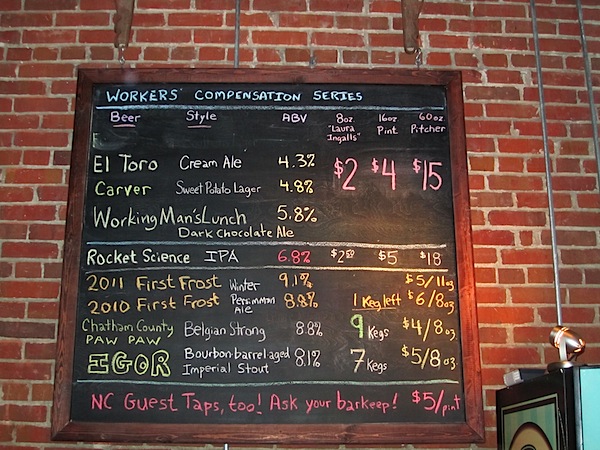 WORKERS' COMPENSATION SERIES
Beer Style ABV 8oz. "Laura Ingalls" 16oz Pint 60oz. Pitcher
El Toro Cream Ale 4.3% $2 $4 $15
Carver Sweet Potato Lager 4.8%
Working Man's Lunch 5.8%
Dark Chocolate Ale
Rocket Science IPA 6.8% $2 $5 $18
2011 First Frost Winter 9.1% $5/11oz
2010 First Frost Persimmon Ale 8.8% 1 Keg left $6/8oz
Chatham County PAW PAW Belgian Strong 8.8% 9 Kegs $4/8oz
IGOR Bourbon barrel aged Imperial Stout 8.1% 7 Kegs $5/8oz
NC Guest Taps, too! Ask your barkeep! $5/pint